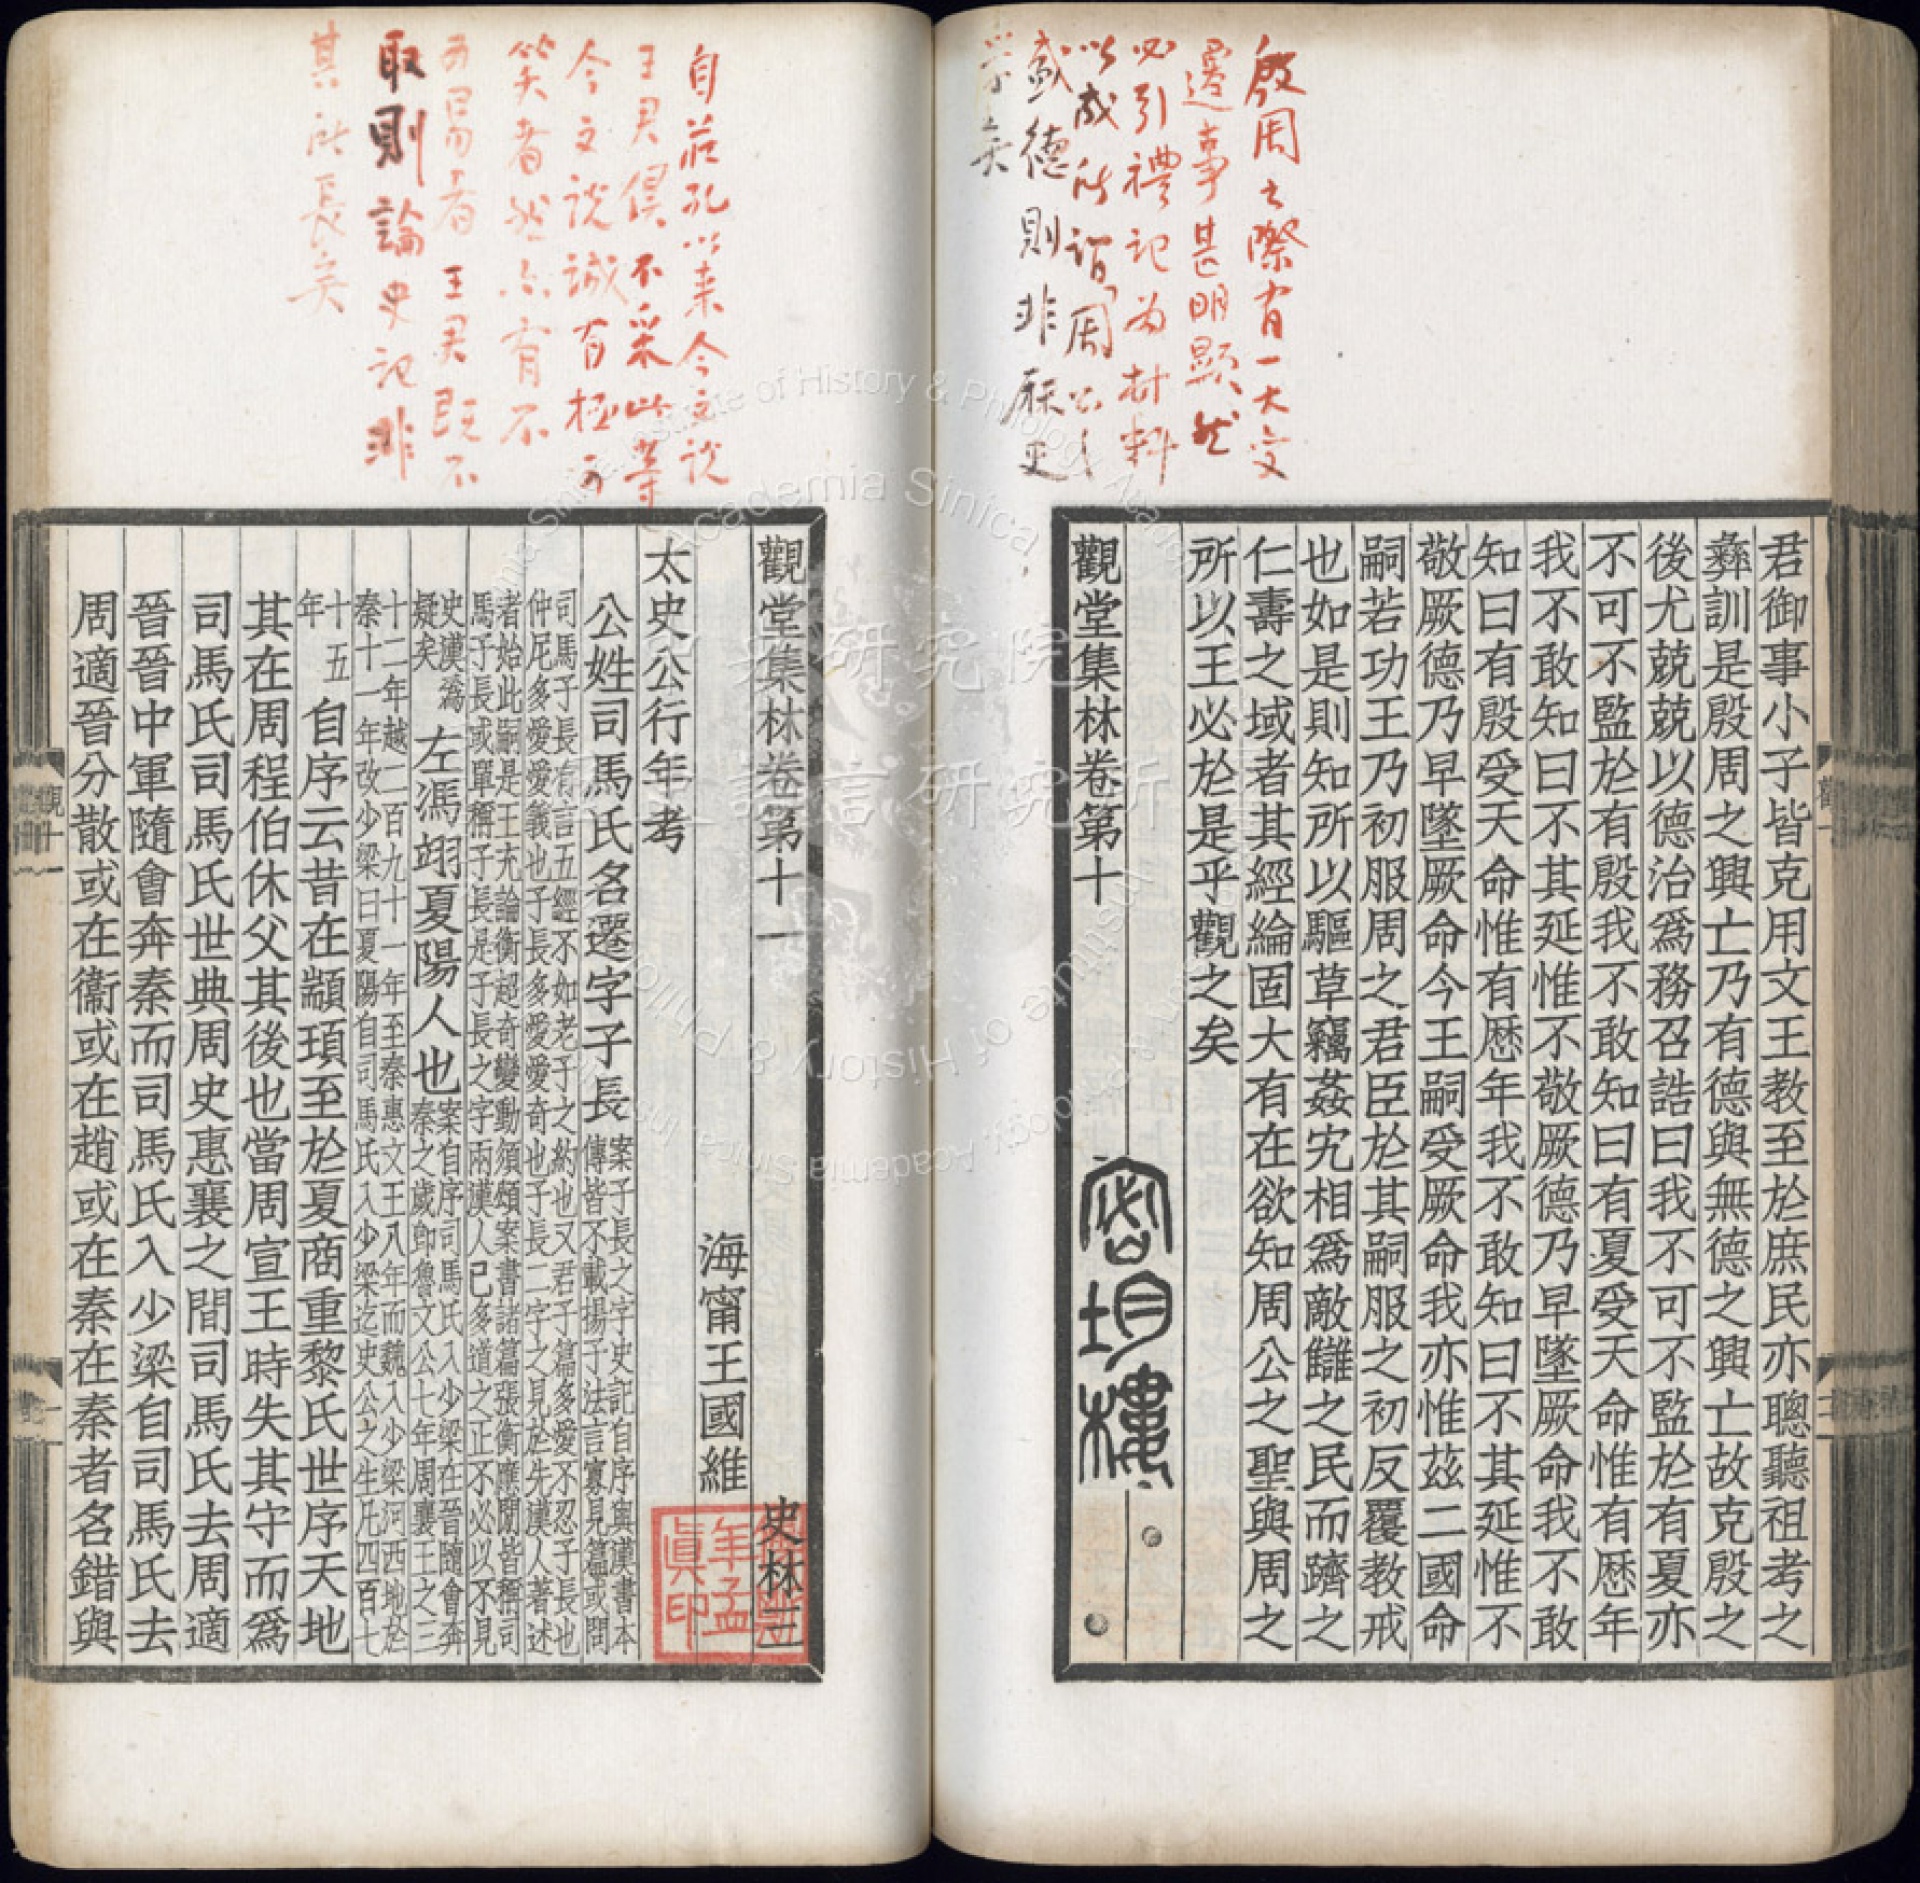 殷周之際有一大變
遷事甚明顯然
必引禮記為材料
以成所謂「周公」
盛德則非歷史
學矣
君御事小子皆克用文王教至於庶民亦聰聽祖考之
彝訓是殷周之興亡乃有德與無德之興亡故克殷之
後尤兢兢以德治爲務召誥曰我不可不監於有夏亦
不可不監於有殷我不敢知曰有夏受天命惟有歷年
我不敢知曰不其延惟不敬厥德乃早墜厥命我不敢
知曰有殷受天命惟有歷年我不敢知曰不其延惟不
敬厥德乃早墜厥命今王嗣受厥命我亦惟茲二國命
嗣若功王乃初服周之君臣於其嗣服之初反覆教戒
也如是則知所以驅草竊姦宄相爲敵讎之民而躋之
仁壽之域者其經綸固大有在欲知周公之聖與周之
所以王必於是乎觀之矣
觀堂集林卷第十
密均樓
自莊孔以來今文說
王君俱不采此等
今文說誠有極可
笑者然亦有不
可易者王君既不
取則論史記非
其所長矣
觀堂集林卷第十一
史林三
海甯王國維
太史公行年考
公姓司馬氏名遷字子長
案子長之字史記自序與漢書本
傳皆不載揚子法言寡見篇或問
司馬子長有言五經不如老子之約也又君子篇多愛不忍子長也
仲尼多愛愛義也子長多愛愛奇也子長二字之見於先漢人著述
者始此嗣是王充論衡超奇變動須頌案書諸篇張衡應閒皆稱司
馬子長或單稱子長是子長之字兩漢人已多道之正不必以不見
史漢爲
疑矣
左馮翊夏陽人也
案自序司馬氏入少梁在晉隨會奔
秦之歲即魯文公七年周襄王之三
十二年越二百九十一年至秦惠文王八年而魏入少梁河西地於
秦十一年改少梁曰夏陽自司馬氏入少梁迄史公之生凡四百七
十五
年
自序云昔在顓頊至於夏商重黎氏世序天地
其在周程伯休父其後也當周宣王時失其守而爲
司馬氏司馬氏世典周史惠襄之間司馬氏去周適
晉晉中軍隨會奔秦而司馬氏入少梁自司馬氏去
周適晉分散或在衞或在趙或在秦在秦者名錯與
年孟
眞印
中央研究院
歷史語言研究所
Institute of History & Philology, Academia Sinica